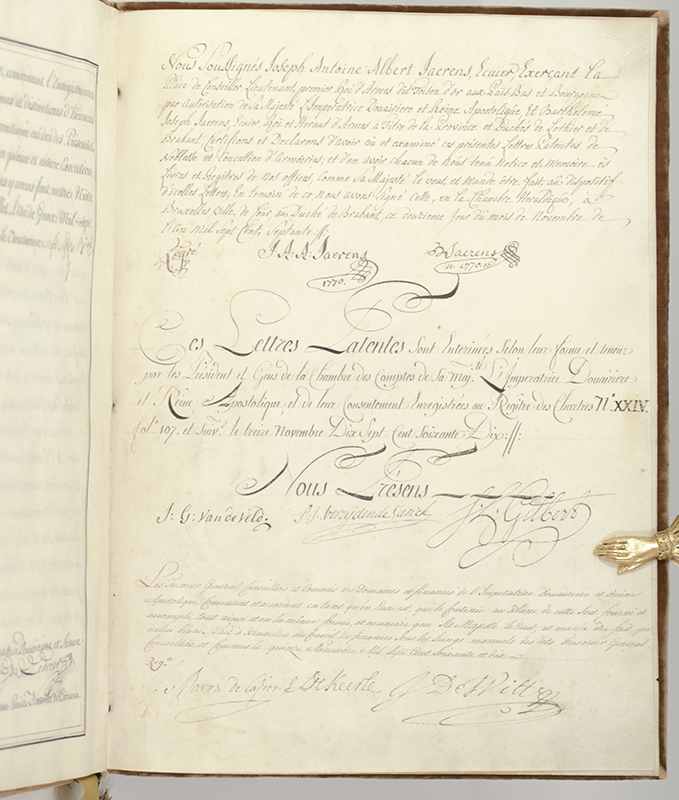 , concernent l'Enregistrature
ques et distinctions d'Honneur
au dos des Presentes,
pleine et entiere Execution,
ayons fait mettre Nôtre
l'An de Grace Mil-Sept
Nous Soussignés Joseph Antoine Albert Jaerens, Ecuier, Exerçant la
Place de Conseiller Lieutenant premier Roi d'Armes dit Toison d'or aux Païs Bas et Bourgogne
par autorisation de sa Majesté L'Imperatrice Douairiere et Reine Apostolique, Et Barthelemé
Joseph Jaerens Ecuier, Roi et Heraut d'Armes a Titre de la Province et Duchés de Lothier et de
Brabant Certifions et Declarons d'avoir vû et examiné ces presentes Lettres Patentes de
Noblesse et Concession d'Armoiries; et d'en avoir chacun de Nous tenu Notice et Memoire es
Livres et Régitres de Nos offices, comme Sa Majesté le veut, et Mande être fait, au dispositif
d'icelles Lettres, En temoin de ce Nous avons Signé cette, en la Chambre Heraldique, à
Bruxelles Ville de Cour au Duché de Brabant, ce douzieme Jour du mois de Novembre de
l'An Mil Sept Cent Septante
J: A: A: Jaerens
1770.
B Jaerens
1770
Ces Lettres Patentes Sont Enterinées Selon leur forme et teneur
par les Président et Gens de la Chambre des Comptes de Sa Maj.té L'Imperatrice Douairiere
et Reine Apostolique et de leur Consentement Enregistrées au Regître des Chartres N.o XXIV.
fol.o 107. et Suiv.t le treize Novembre Dix Sept Cent Soixante Dix
Nous Présens
J: G: Vandeveld.
J: J: Gilbert
Les Tresorier General, Conseillers et Commis des Domaines et finances de l'Imperatrice Douairiere et Reine
Apostolique, Consentent et accordent en tant qu'en eux est, que le Contenu au blanc de cette Soit fourni et
accompli tout ainsi et en la même forme, et maniere que Sa Majesté le Veut, et mande être fait par
icelui blanc. Fait à Bruxelles au Conseil des finances Sous les Seings manuels des dits Tresorier General
Conseillers et Commis le quinze Novembre Mil Sept Cent Soixante et dix
Baron de Cazier
De Keerle
De Witt